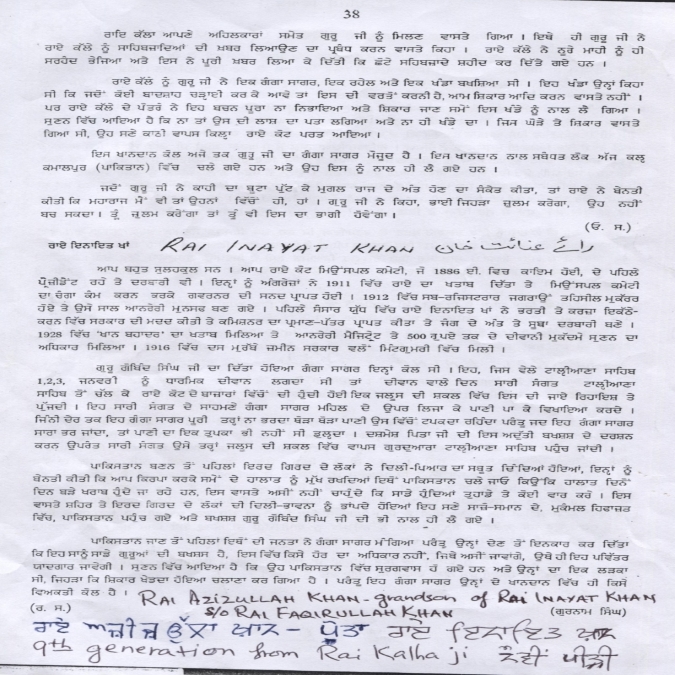 38
ਰਾਇ ਕੱਲਾ ਆਪਣੇ ਅਹਿਲਕਾਰਾਂ ਸਮੇਤ ਗੁਰੂ ਜੀ ਨੂੰ ਮਿਲਣ ਵਾਸਤੇ ਗਿਆ । ਇਥੇ ਹੀ ਗੁਰੂ ਜੀ ਨੇ
ਰਾਏ ਕੱਲੇ ਨੂੰ ਸਾਹਿਬਜ਼ਾਦਿਆਂ ਦੀ ਖ਼ਬਰ ਲਿਆਉਣ ਦਾ ਪ੍ਰਬੰਧ ਕਰਨ ਵਾਸਤੇ ਕਿਹਾ । ਰਾਏ ਕੱਲੇ ਨੇ ਨੂਰੇ ਮਾਹੀ ਨੂੰ ਹੀ
ਸਰਹੰਦ ਭੇਜਿਆ ਅਤੇ ਇਸ ਨੇ ਪੂਰੀ ਖ਼ਬਰ ਲਿਆ ਕੇ ਦਿੱਤੀ ਕਿ ਛੋਟੇ ਸਹਿਬਜ਼ਾਦੇ ਸ਼ਹੀਦ ਕਰ ਦਿੱਤੇ ਗਏ ਹਨ ।
ਰਾਏ ਕੱਲੇ ਨੂੰ ਗੁਰੂ ਜੀ ਨੇ ਇਕ ਗੰਗਾ ਸਾਗਰ, ਇਕ ਰਹੇਲ ਅਤੇ ਇਕ ਖੰਡਾ ਬਖਸ਼ਿਆ ਸੀ । ਇਹ ਖੰਡਾ ਉਨ੍ਹਾਂ ਕਿਹਾ
ਸੀ ਕਿ ਜਦੋਂ ਕੋਈ ਬਾਦਸ਼ਾਹ ਚੜ੍ਹਾਈ ਕਰ ਕੇ ਆਵੇ ਤਾਂ ਇਸ ਦੀ ਵਰਤੋਂ ਕਰਨੀ ਹੈ, ਆਮ ਸ਼ਿਕਾਰ ਆਦਿ ਕਰਨ ਵਾਸਤੇ ਨਹੀਂ ।
ਪਰ ਰਾਏ ਕੱਲੇ ਦੇ ਪੌਤਰੇ ਨੇ ਇਹ ਬਚਨ ਪੂਰਾ ਨਾ ਨਿਭਾਇਆ ਅਤੇ ਸ਼ਿਕਾਰ ਜਾਣ ਸਮੇਂ ਇਸ ਖੰਡੇ ਨੂੰ ਨਾਲ ਲੈ ਗਿਆ ।
ਸੁਣਨ ਵਿੱਚ ਆਇਆ ਹੈ ਕਿ ਨਾ ਤਾਂ ਉਸ ਦੀ ਲਾਸ਼ ਦਾ ਪਤਾ ਲਗਿਆ ਅਤੇ ਨਾ ਹੀ ਖੰਡੇ ਦਾ । ਜਿਸ ਘੋੜੇ ਤੇ ਸ਼ਿਕਾਰ ਵਾਸਤੇ
ਗਿਆ ਸੀ, ਉਹ ਸਣੇ ਕਾਠੀ ਵਾਪਸ ਕਿਲ੍ਹਾ ਰਾਏ ਕੋਟ ਪਰਤ ਆਇਆ ।
ਇਸ ਖਾਨਦਾਨ ਕੋਲ ਅਜੇ ਤਕ ਗੁਰੂ ਜੀ ਦਾ ਗੰਗਾ ਸਾਗਰ ਮੌਜੂਦ ਹੈ । ਇਸ ਖਾਨਦਾਨ ਨਾਲ ਸਬੰਧਤ ਲੋਕ ਅੱਜ ਕਲ੍ਹ
ਕਮਾਲਪੁਰ (ਪਾਕਿਤਾਨ) ਵਿੱਚ ਚਲੇ ਗਏ ਹਨ ਅਤੇ ਉਹ ਇਸ ਨੂੰ ਨਾਲ ਹੀ ਲੈ ਗਏ ਹਨ ।
ਜਦੋਂ ਗੁਰੂ ਜੀ ਨੇ ਕਾਹੀ ਦਾ ਬੂਟਾ ਪੁੱਟ ਕੇ ਮੁਗਲ ਰਾਜ ਦੇ ਅੰਤ ਹੋਣ ਦਾ ਸੰਕੇਤ ਕੀਤਾ, ਤਾਂ ਰਾਏ ਨੇ ਬੇਨਤੀ
ਕੀਤੀ ਕਿ ਮਹਾਰਾਜ ਮੈਂ ਵੀ ਤਾਂ ਉਹਨਾਂ ਵਿੱਚੋਂ ਹੀ, ਹਾਂ । ਗੁਰੂ ਜੀ ਨੇ ਕਿਹਾ, ਭਾਈ ਜਿਹੜਾ ਜ਼ੁਲਮ ਕਰੇਗਾ, ਉਹ ਨਹੀਂ
ਬਚ ਸਕਦਾ । ਤੂੰ ਜ਼ੁਲਮ ਕਰੇਂਗਾ ਤਾਂ ਤੂੰ ਵੀ ਇਸ ਦਾ ਭਾਗੀ ਹੋਵੇਂਗਾ ।
(ਓ. ਸ.)
ਰਾਏ ਇਨਾਇਤ ਖਾਂ RAI INAYAT KHAN رائے عنائت خان
ਆਪ ਬਹੁਤ ਸੁਲਹਕੁਲ ਸਨ । ਆਪ ਰਾਏ ਕੋਟ ਮਿਉਂਸਪਲ ਕਮੇਟੀ, ਜੋ 1886 ਈ. ਵਿਚ ਕਾਇਮ ਹੋਈ, ਦੇ ਪਹਿਲੇ
ਪ੍ਰੈਜ਼ੀਡੈਂਟ ਰਹੇ ਤੇ ਦਰਬਾਰੀ ਵੀ । ਇਨ੍ਹਾਂ ਨੂੰ ਅੰਗਰੇਜ਼ਾਂ ਨੇ 1911 ਵਿੱਚ ਰਾਏ ਦਾ ਖਤਾਬ ਦਿੱਤਾ ਤੇ ਮਿਉਂਸਪਲ ਕਮੇਟੀ
ਦਾ ਚੰਗਾ ਕੰਮ ਕਰਨ ਕਰਕੇ ਗਵਰਨਰ ਦੀ ਸਨਦ ਪ੍ਰਾਪਤ ਹੋਈ । 1912 ਵਿੱਚ ਸਬ-ਰਜਿਸਟਰਾਰ ਜਗਰਾਉਂ ਤਹਿਸੀਲ ਮੁਕੱਰਰ
ਹੋਏ ਤੇ ਉਸੇ ਸਾਲ ਆਨਰੇਰੀ ਮੁਨਸਫ਼ ਬਣ ਗਏ । ਪਹਿਲੇ ਸੰਸਾਰ ਯੁੱਧ ਵਿੱਚ ਰਾਏ ਇਨਾਇਤ ਖਾਂ ਨੇ ਭਰਤੀ ਤੇ ਕਰਜ਼ਾ ਇਕੱਠੇ-
ਕਰਨ ਵਿੱਚ ਸਰਕਾਰ ਦੀ ਮਦਦ ਕੀਤੀ ਤੇ ਕਮਿਸ਼ਨਰ ਦਾ ਪ੍ਰਮਾਣ-ਪੱਤਰ ਪ੍ਰਾਪਤ ਕੀਤਾ ਤੇ ਜੰਗ ਦੇ ਅੰਤ ਤੇ ਸੂਬਾ ਦਰਬਾਰੀ ਬਣੇ ।
1928 ਵਿੱਚ 'ਖਾਨ ਬਹਾਦਰ' ਦਾ ਖਤਾਬ ਮਿਲਿਆ ਤੇ ਆਨਰੇਰੀ ਮੈਜਿਸਟ੍ਰੇਟ ਤੇ 500 ਰੁਪਏ ਤਕ ਦੇ ਦੀਵਾਨੀ ਮੁਕੱਦਮੇ ਸੁਣਨ ਦਾ
ਅਧਿਕਾਰ ਮਿਲਿਆ । 1916 ਵਿੱਚ ਦਸ ਮੁਰੱਬੇ ਜ਼ਮੀਨ ਸਰਕਾਰ ਵਲੋਂ ਮਿੰਟਗੁਮਰੀ ਵਿੱਚ ਮਿਲੀ ।
ਗੁਰੂ ਗੋਬਿੰਦ ਸਿੰਘ ਜੀ ਦਾ ਦਿੱਤਾ ਹੋਇਆ ਗੰਗਾ ਸਾਗਰ ਇਨ੍ਹਾਂ ਕੋਲ ਸੀ । ਇਹ, ਜਿਸ ਵੇਲੇ ਟਾਲ੍ਹੀਆਣਾ ਸਾਹਿਬ
1,2,3, ਜਨਵਰੀ ਨੂੰ ਧਾਰਮਿਕ ਦੀਵਾਨ ਲਗਦਾ ਸੀ ਤਾਂ ਦੀਵਾਨ ਵਾਲੇ ਦਿਨ ਸਾਰੀ ਸੰਗਤ ਟਾਲ੍ਹੀਆਣਾ
ਸਾਹਿਬ ਤੋਂ ਚੱਲ ਕੇ ਰਾਏ ਕੋਟ ਦੇ ਬਾਜ਼ਾਰਾਂ ਵਿੱਚੋਂ ਦੀ ਹੁੰਦੀ ਹੋਈ ਇਕ ਜਲੂਸ ਦੀ ਸ਼ਕਲ ਵਿੱਚ ਇਸ ਦੀ ਜਾਏ ਰਿਹਾਇਸ਼ ਤੇ
ਪੁੱਜਦੀ । ਇਹ ਸਾਰੀ ਸੰਗਤ ਦੇ ਸਾਹਮਣੇ ਗੰਗਾ ਸਾਗਰ ਮਹਿਲ ਦੇ ਉਪਰ ਲਿਜਾ ਕੇ ਪਾਣੀ ਪਾ ਕੇ ਵਿਖਾਇਆ ਕਰਦੇ ।
ਜਿੰਨੀ ਦੇਰ ਤਕ ਇਹ ਗੰਗਾ ਸਾਗਰ ਪੂਰੀ ਤਰ੍ਹਾਂ ਨਾ ਭਰਦਾ ਥੋੜਾ ਥੋੜਾ ਪਾਣੀ ਉਸ ਵਿੱਚੋਂ ਟਪਕਦਾ ਰਹਿੰਦਾ ਪਰੰਤੂ ਜਦ ਇਹ ਗੰਗਾ ਸਾਗਰ
ਸਾਰਾ ਭਰ ਜਾਂਦਾ, ਤਾਂ ਪਾਣੀ ਦਾ ਇਕ ਤੁਪਕਾ ਭੀ ਨਹੀਂ ਸੀ ਡੁਲ੍ਹਦਾ । ਦਸਮੇਸ਼ ਪਿਤਾ ਜੀ ਦੀ ਇਸ ਅਦੁੱਤੀ ਬਖਸ਼ਸ਼ ਦੇ ਦਰਸ਼ਨ
ਕਰਨ ਉਪਰੰਤ ਸਾਰੀ ਸੰਗਤ ਉਸੇ ਤਰ੍ਹਾਂ ਜਲੂਸ ਦੀ ਸ਼ਕਲ ਵਿੱਚ ਵਾਪਸ ਗੁਰਦੁਆਰਾ ਟਾਲ੍ਹੀਆਣਾ ਸਾਹਿਬ ਪਹੁੰਚ ਜਾਂਦੀ ।
ਪਾਕਿਸਤਾਨ ਬਣਨ ਤੋਂ ਪਹਿਲਾਂ ਇਰਦ ਗਿਰਦ ਦੇ ਲੋਕਾਂ ਨੇ ਦਿਲੀ-ਪਿਆਰ ਦਾ ਸਬੂਤ ਦਿੰਦਿਆਂ ਹੋਇਆਂ, ਇਨ੍ਹਾਂ ਨੂੰ
ਬੇਨਤੀ ਕੀਤੀ ਕਿ ਆਪ ਕਿਰਪਾ ਕਰਕੇ ਸਮੇਂ ਦੇ ਹਾਲਾਤ ਨੂੰ ਮੁੱਖ ਰਖਦਿਆਂ ਇਥੋਂ ਪਾਕਿਸਤਾਨ ਚਲੇ ਜਾਓ ਕਿਉਂਕਿ ਹਾਲਾਤ ਦਿਨੋਂ
ਦਿਨ ਬੜੇ ਖਰਾਬ ਹੁੰਦੇ ਜਾ ਰਹੇ ਹਨ, ਇਸ ਵਾਸਤੇ ਅਸੀਂ ਨਹੀਂ ਚਾਹੁੰਦੇ ਕਿ ਸਾਡੇ ਹੁੰਦਿਆਂ ਤੁਹਾਡੇ ਤੇ ਕੋਈ ਵਾਰ ਕਰੇ । ਇਸ
ਵਾਸਤੇ ਸ਼ਹਿਰ ਤੇ ਇਰਦ ਗਿਰਦ ਦੇ ਲੋਕਾਂ ਦੀ ਦਿਲੀ-ਭਾਵਨਾ ਨੂੰ ਭਾਂਪਦੇ ਹੋਇਆਂ ਇਹ ਸਣੇ ਸਾਜ਼ੋ-ਸਮਾਨ ਦੇ, ਮੁਕੰਮਲ ਹਿਫਾਜ਼ਤ
ਵਿੱਚ, ਪਾਕਿਸਤਾਨ ਪਹੁੰਚ ਗਏ ਅਤੇ ਬਖਸ਼ਸ਼ ਗੁਰੂ ਗੋਬਿੰਦ ਸਿੰਘ ਜੀ ਦੀ ਭੀ ਨਾਲ ਹੀ ਲੈ ਗਏ ।
ਪਾਕਿਸਤਾਨ ਜਾਣ ਤੋਂ ਪਹਿਲਾਂ ਇਥੋਂ ਦੀ ਜਨਤਾ ਨੇ ਗੰਗਾ ਸਾਗਰ ਮੰਗਿਆ ਪਰੰਤੂ ਉਨ੍ਹਾਂ ਦੇਣ ਤੋਂ ਇਨਕਾਰ ਕਰ ਦਿੱਤਾ
ਕਿ ਇਹ ਸਾਨੂੰ ਸਾਡੇ ਗੁਰੂਆਂ ਦੀ ਬਖਸ਼ਸ਼ ਹੈ, ਇਸ ਵਿੱਚ ਕਿਸੇ ਹੋਰ ਦਾ ਅਧਿਕਾਰ ਨਹੀਂ, ਜਿਥੇ ਅਸੀਂ ਜਾਵਾਂਗੇ, ਉਥੇ ਹੀ ਇਹ ਪਵਿੱਤਰ
ਯਾਦਗਾਰ ਜਾਵੇਗੀ । ਸੁਣਨ ਵਿੱਚ ਆਇਆ ਹੈ ਕਿ ਉਹ ਪਾਕਿਸਤਾਨ ਵਿੱਚ ਸੁਰਗਵਾਸ ਹੋ ਗਏ ਹਨ ਅਤੇ ਉਨ੍ਹਾਂ ਦਾ ਇਕ ਲੜਕਾ
ਸੀ, ਜਿਹੜਾ ਕਿ ਸ਼ਿਕਾਰ ਖੇਡਦਾ ਹੋਇਆ ਚਲਾਣਾ ਕਰ ਗਿਆ ਹੈ । ਪਰੰਤੂ ਇਹ ਗੰਗਾ ਸਾਗਰ ਉਨ੍ਹਾਂ ਦੇ ਖਾਨਦਾਨ ਵਿੱਚ ਹੀ ਕਿਸੇ
ਵਿਅਕਤੀ ਕੋਲ ਹੈ । RAI AZIZULLAH KHAN - grandson of RAI INAYAT KHAN
(ਰ. ਸ.) S/O RAI FAQIRULLAH KHAN (ਗੁਰਨਾਮ ਸਿੰਘ)
ਰਾਏ ਅਜ਼ੀਜ਼ ਉੱਲਾ ਖ਼ਾਨ - ਪੋਤਾ ਰਾਏ ਇਨਾਇਤ ਖ਼ਾਨ
9th generation from Rai Kalha ji ਨੌਵੀਂ ਪੀੜ੍ਹੀ